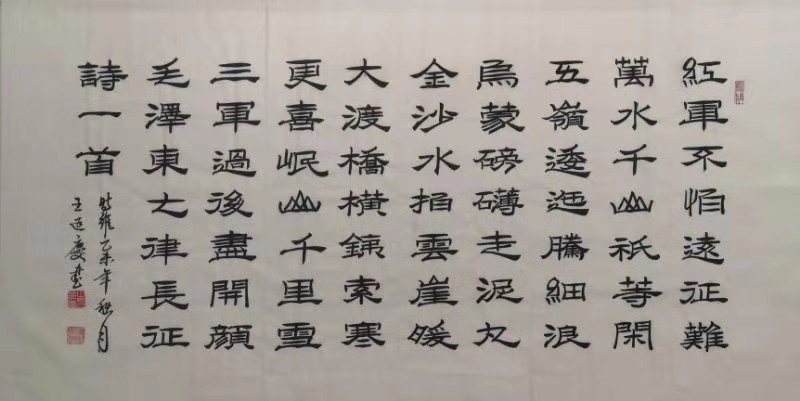 紅軍不怕遠征難
萬水千山祇等閑
五嶺逶迤騰細浪
烏蒙磅礴走泥丸
金沙水拍雲崖暖
大渡橋橫鐵索寒
更喜岷山千里雪
三軍過後盡開顏
毛澤東七律長征
詩一首
時維乙未年秋月
王廷慶書